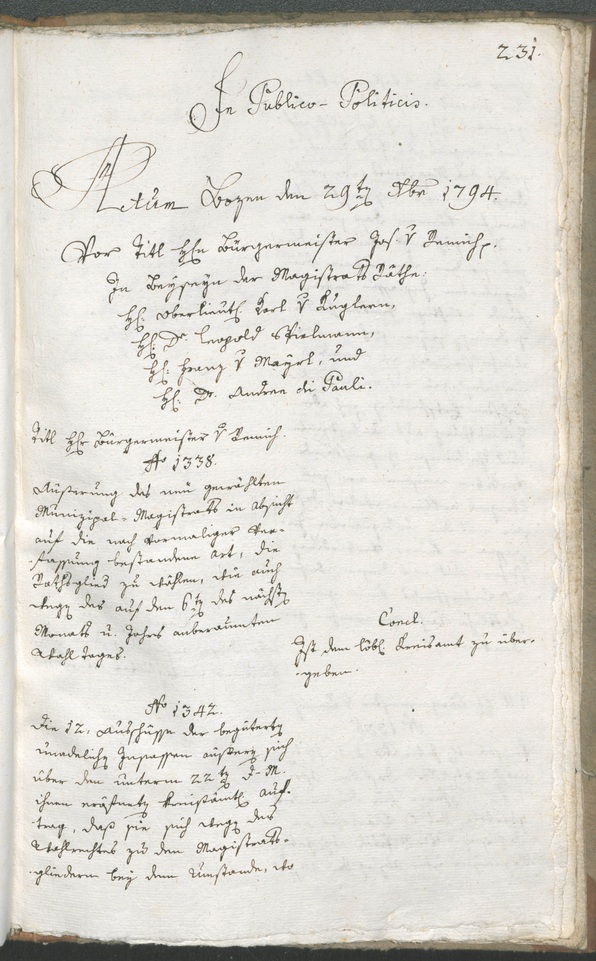 231.
In Publico-Politicis.
Actum Bozen den 29ten Xbr 1794.
Vor Titl Hhn Bürgermeister Jos: v
In Beyseyn der Magistrats Räthe:
Hh: Oberlieut: Karl v Kuglern,
Hh: Dr. Leopold
Hh: Franz v Mayrl, und
Hh: Dr. Andree di Pauli.
Titl Hhr Bürgermeister v
No 1338.
Äußerung des neu gewählten
Munizipal-Magistrats in Absicht
auf die nach vormaliger Ver-
fassung bestandene Art, die
Rathsglied zu wählen, wie auch
wegen des auf den 6ten des nächsten
Monats u. Jahrs anberaumten
Wahl Tages.
Concl.
Ist dem löbl. Kreisamt zu über-
geben.
No 1342.
Die 12: Ausschüsse der begüterten
unadelichen Insassen äußern sich
über den unterm 22ten d: M.
ihnen eröfneten Auf-
trag, daß sie sich wegen des
Wahlrechtes zu den Magistrats-
gliedern bey dem Umstande, wo